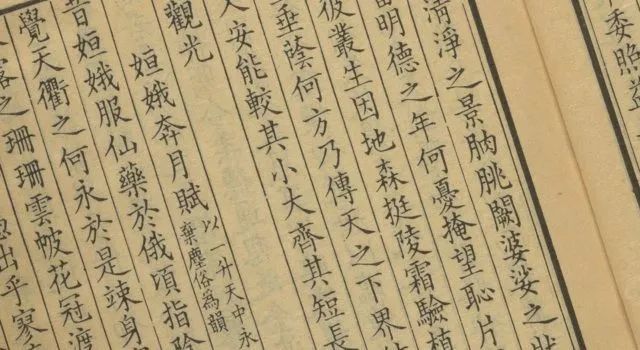 委照
清淨之景朒朓闕婆娑之狀
當明德之年何憂掩望恥片
彼叢生因地森挺陵霜驗植
垂蔭何方乃傳天之下界
安能較其小大齊其短長
觀光
姮娥奔月賦
以一升天中永
棄塵俗為韻
昔姮娥服仙藥於俄頃指
覺天衢之何永於是竦身
客之珊珊雲帔花冠渡
出乎家